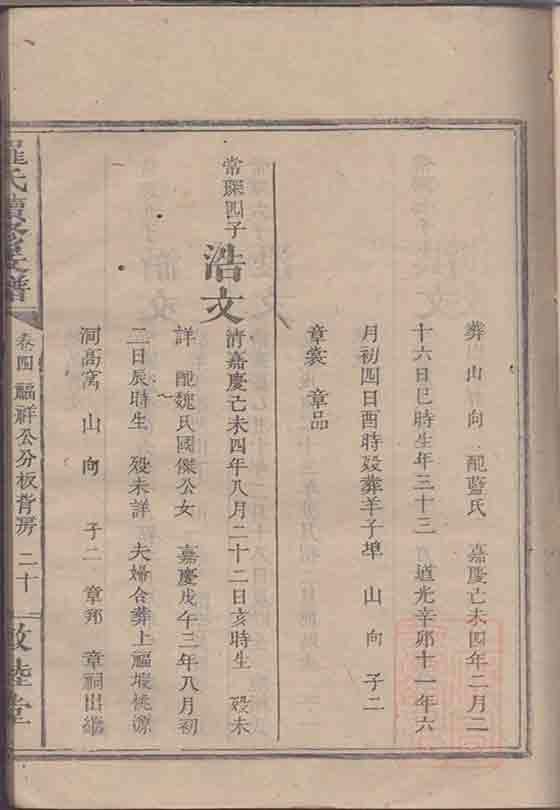 葬 山 向 配藍氏 嘉慶己未四年二月二
十六日巳時生年三十三 道光辛卯十一年六
月初四日酉時歿葬羊子埠 山 向 子二
章裳 章品
常琛四子
浩文
清嘉慶己未四年八月二十二日亥時生 歿未
詳 配魏氏國傑公女 嘉慶戊午三年八月初
二日辰時生 歿未詳 夫婦合葬上福堰桃源
洞高窩 山 向 子二 章邦 章嗣出繼
羅氏續修支譜
卷四 福祥公分板背房 二十
敦睦堂